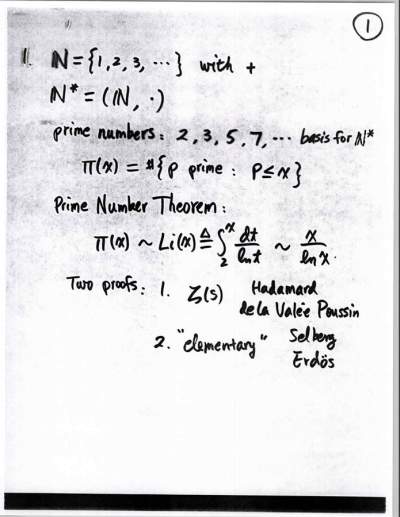 1
1. ℕ = {1, 2, 3, ⋯} with +
ℕ* = (ℕ, ·)
prime numbers: 2, 3, 5, 7, ⋯ basis for ℕ*
π(x) = #{p prime : p ≤ x}
Prime Number Theorem:
π(x) ~ Li(x) ≜ ∫₂ˣ dt/ln t ~ x/ln x.
Two proofs: 1. ζ(s) Hadamard
de la Valée Poussin
2. "elementary" Selberg
Erdös